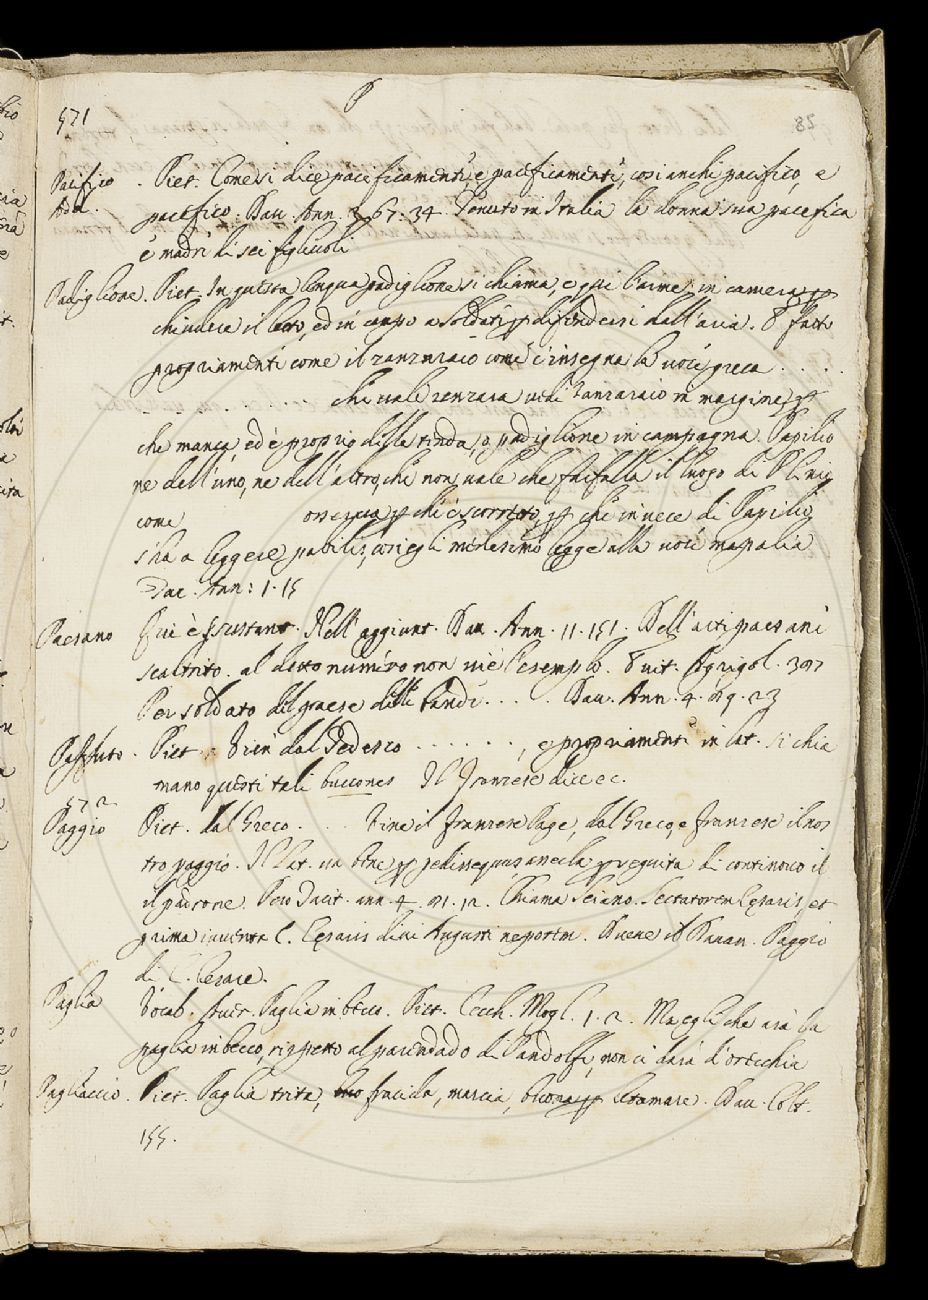 P
571
85
Pacifico . Piet. Come si dice paceficamente, e pacificamente, così anche pacifico, e
Add. pacefico. Dav. Ann. 3. 67: 34. Tenuto in Italia la donna sua pacefica
e madre di sei figliuoli
Padiglione. Piet. In questa lingua padiglione si chiama, e quel arme in camera per
chiudere il letto, ed in campo a soldati per difendersi dall'aria. È fatto
propriamente come il zanzaraio come c'insegna la voce greca . . . .
che vale zenzara vedi Zanzaraio in margine, per
che manca, ed è proprio della tenda, o padiglione in campagna. Papilio
ne dell'uno, ne dell'altro, che non vale che farfalla il luogo di Plinio
come osserva per che è scorretto, per che in vece di Papilio
s'ha a leggere pabilis, così egli medesimo legge alla voce mapalia
Tac. Ann: 1. 15
Paesano Qui è sustant. Nell'aggiunt. Dav. Ann. 11. 151. Dell'arti paesani
scaltrito. al detto numero non v'è l'esempio. È vit. Agrigol. 397
Per soldato del paese delle bande . . . . Dav. Ann. 4. 89. 23
Paffuto . Piet. Vien dal Tedesco . . . . . . , e propriamente in lat. si chia
mano questi tali buccones Il Franzese dice ec.
572
Paggio Piet. dal Greco . . . . tine il franzese Page, dal Greco, e franzese il nos
tro paggio. Il lat. va bene per pedissequus anela per seguita di continovo il
il padrone. Però Tacit. ann. 4. 91. 12. Chiama Seiano. Sectatorem Cesaris, et
prima iuventa C. Cesaris divi Augusti nepotem. Avene il Davan. Paggio
di C. Cesare.
Paglia Vocab. aver. Paglia in becco. Piet. Cecch. Mogl. 1. 2. Ma egli che arà la
paglia in becco, rispetto al parendado di Pandolfo, non ci darà d'orecchie
Pagliaccio. Piet. Paglia trita, fracida, marcia, buona per letamare. Dav. Colt.
155.